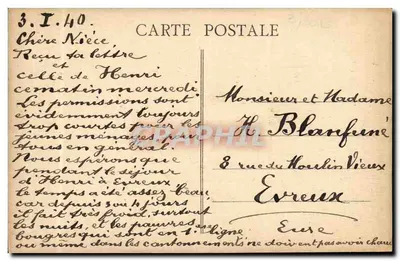 3. I. 40.
CARTE POSTALE
Chère Nièce
Reçu ta lettre
et
celle de Henri
ce matin mercredi
Les permissions sont
évidemment toujours
trop courtes pour les
jeunes ménages, pour
tous en général.
Nous espérons que
pendant le séjour
d'Henri à Evreux
le temps a été assez beau,
car depuis 3 ou 4 jours
il fait très froid, surtout
les nuits, et les pauvres
bougres qui sont en 1e ligne
ou même dans les cantonnements ne doivent pas avoir chaud
Monsieur et Madame
H. Blanfuné
8 rue du Moulin Vieux
Evreux
Eure